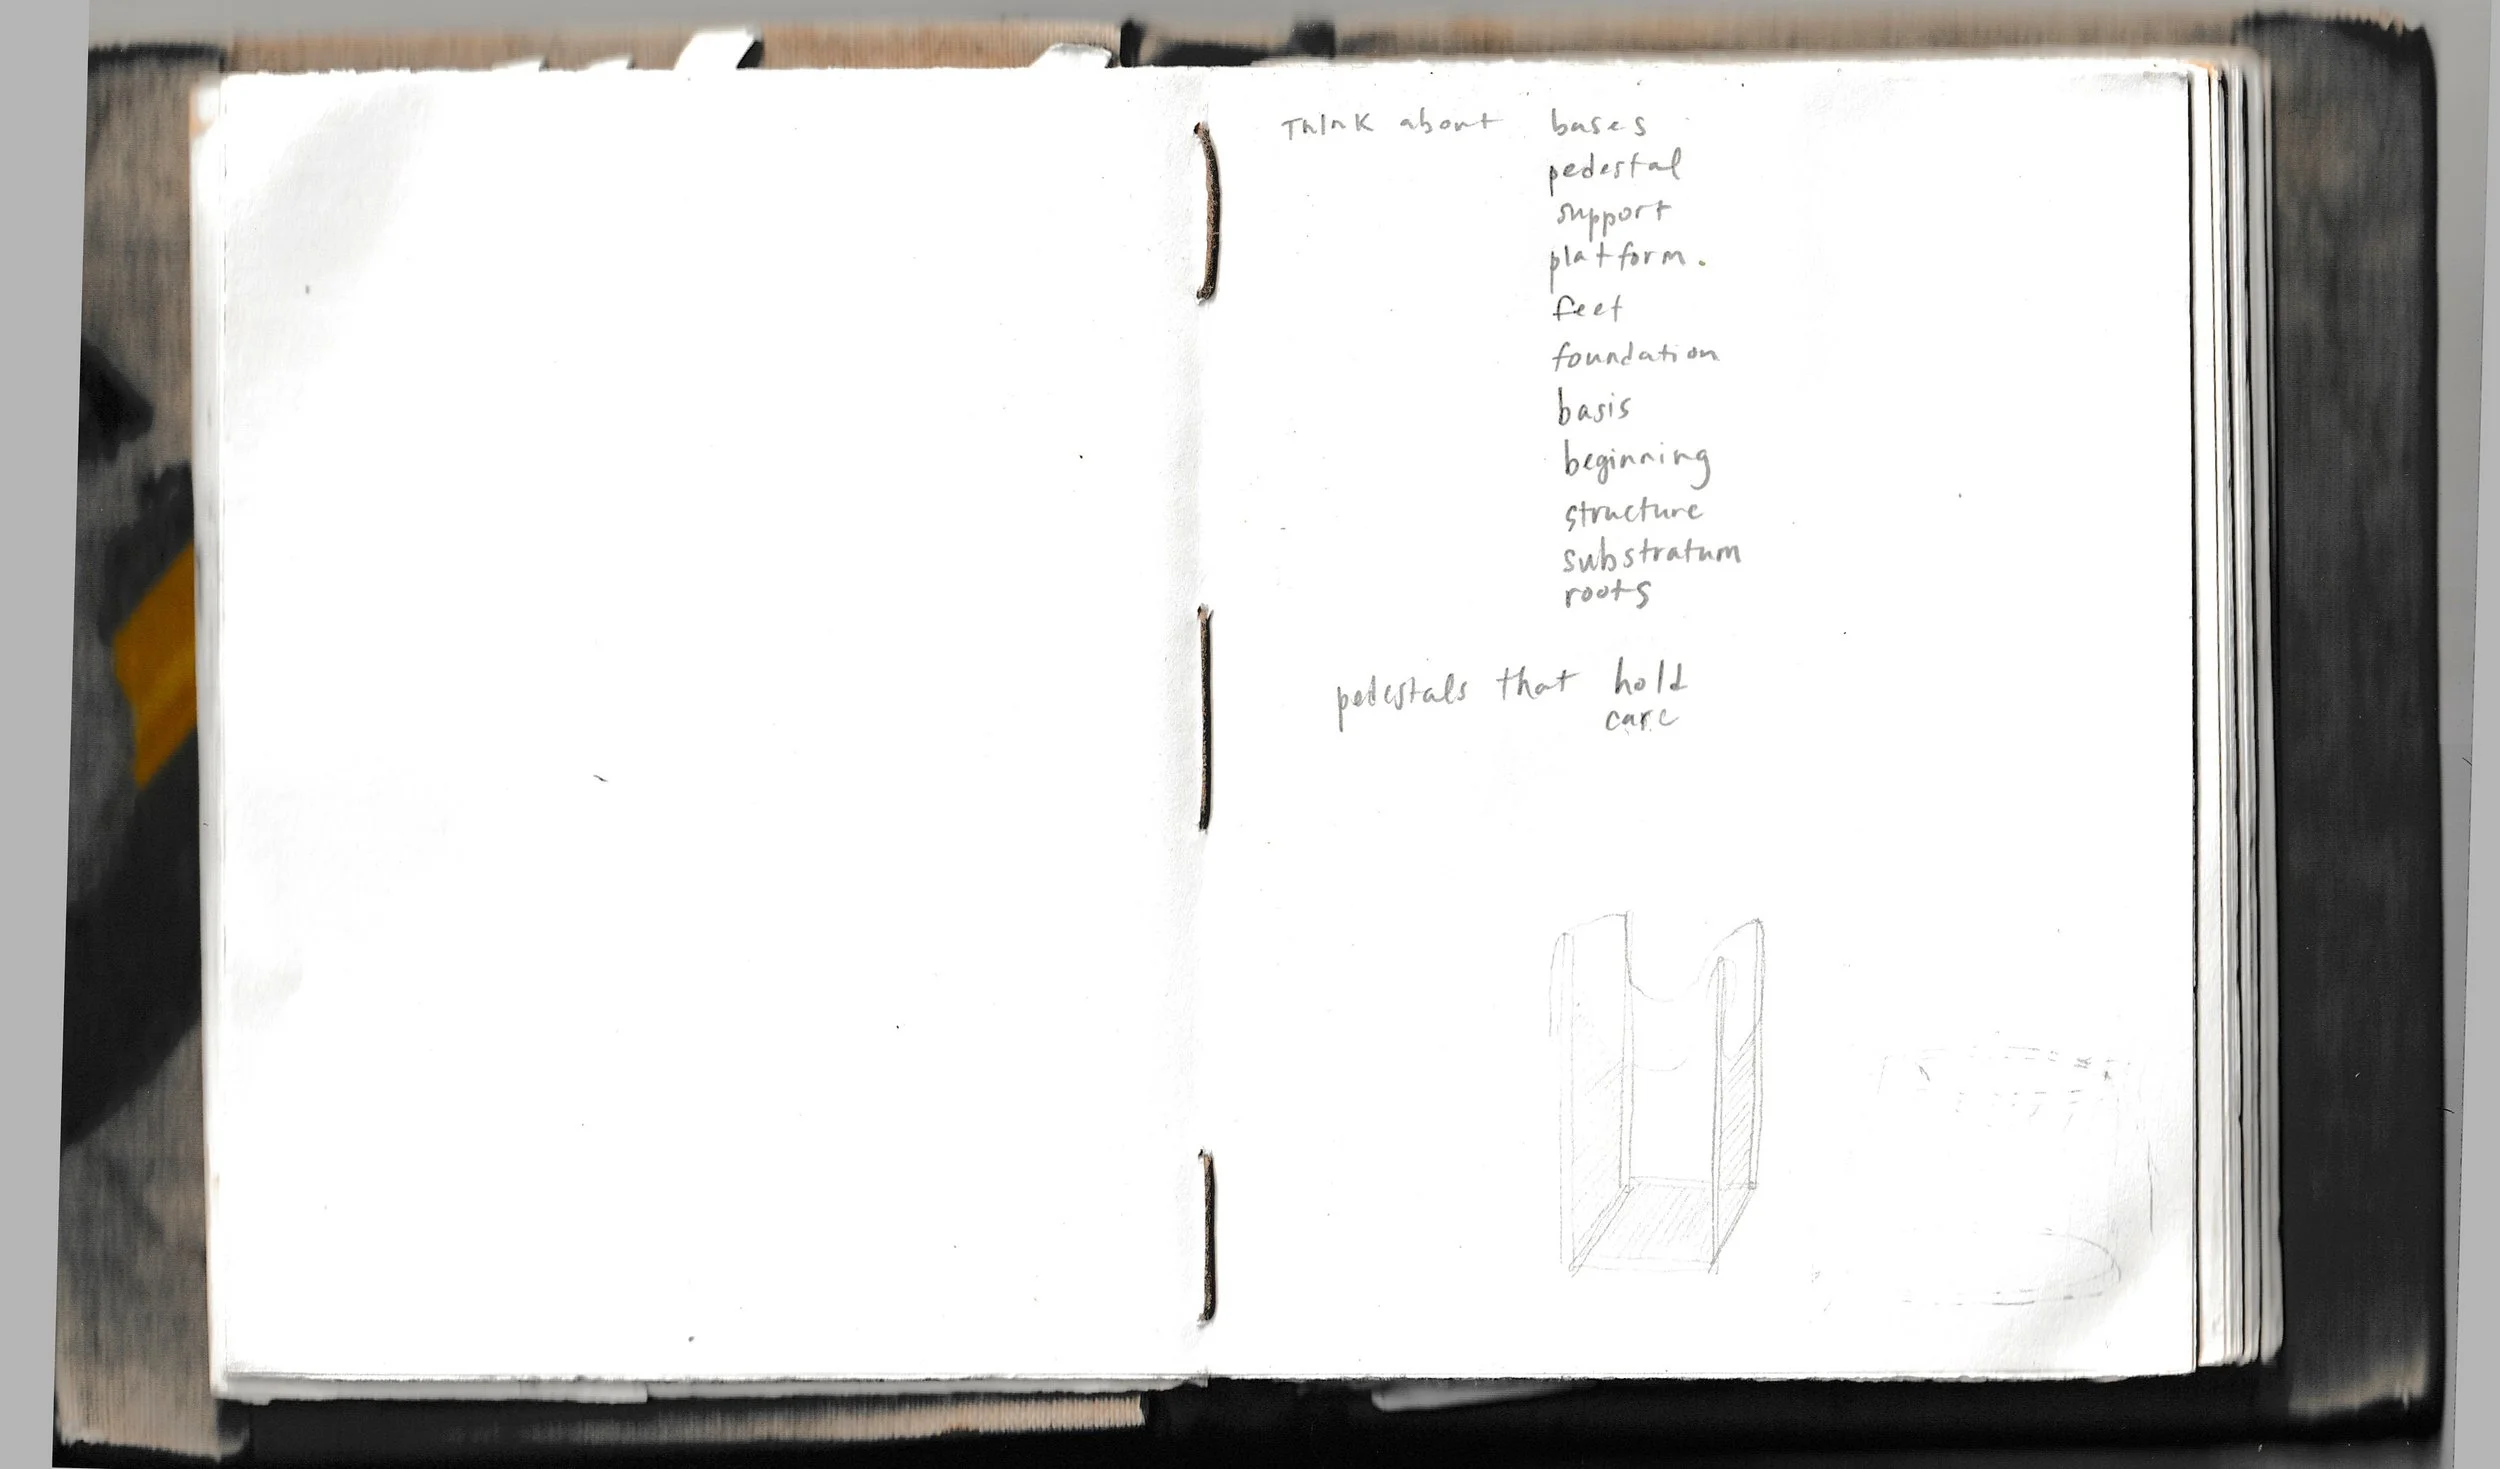 Think about bases
pedestal
support
platform.
feet
foundation
basis
beginning
structure
substratum
roots
pedestals that hold
care